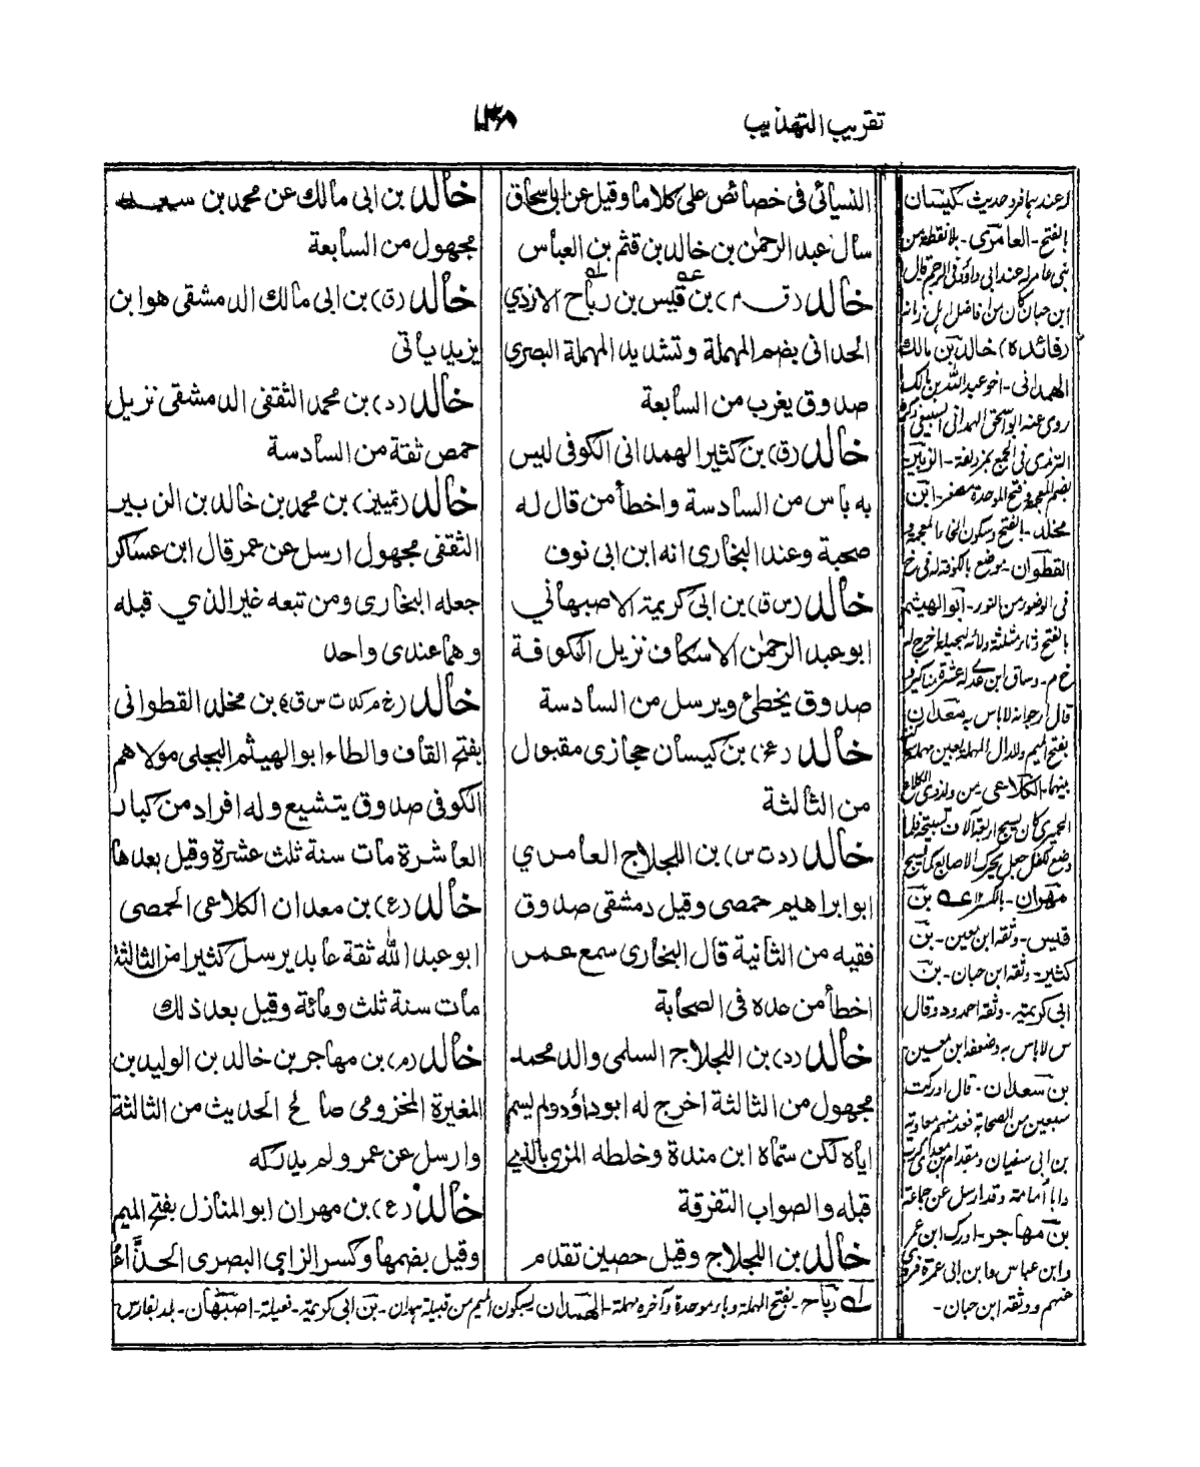 تقريب التهذيب
١٣٨
النسيائى فى خصائص على كلاما وقيل عن ابى اسحاق
سأل عبد الرحمٰن بن خالد بن قثم بن العباس
خالد (ق م) بن قيس بن رباح الازدي
الحدانى بضم المهملة وتشديد المهملة البصري
صدوق يغرب من السابعة
خالد (ق) بن كثير الهمدانى الكوفى ليس
به باس من السادسة واخطأ من قال له
صحبة وعند البخارى انه ابن ابى نوف
خالد (س ق) بن ابى كريمة الاصبهاني
ابو عبد الرحمٰن الاسكاف نزيل الكوفة
صدوق يخطئ ويرسل من السادسة
خالد (عخ) بن كيسان حجازى مقبول
من الثالثة
خالد (د ت س) بن اللجلاج العامري
ابو ابراهيم حمصى وقيل دمشقى صدوق
فقيه من الثانية قال البخارى سمع عمر
اخطأ من عده فى الصحابة
خالد (د) بن اللجلاج السلمى والد محمد
مجهول من الثالثة اخرج له ابو داؤد ولم يسم
اياه لكن سماه ابن مندة وخلطه المزى بالذي
قبله والصواب التفرقة
خالد بن اللجلاج وقيل حصين تقدم
خالد بن ابى مالك عن محمد بن سعد
مجهول من السابعة
خالد (ق) بن ابى مالك الدمشقى هو ابن
يزيد ياتى
خالد (د) بن محمد الثقفى الدمشقى نزيل
حمص ثقة من السادسة
خالد (تمييز) بن محمد بن خالد بن الزبير
الثقفى مجهول ارسل عن عمر قال ابن عساكر
جعله البخارى ومن تبعه غير الذي قبله
وهما عندى واحد
خالد (خ م كد ت س ق) بن مخلد القطوانى
بفتح القاف والطاء ابو الهيثم البجلى مولاهم
الكوفى صدوق يتشيع وله افراد من كبار
العاشرة مات سنة ثلث عشرة وقيل بعدها
خالد (ع) بن معدان الكلاعى الحمصى
ابو عبد الله ثقة عابد يرسل كثيرا من الثالثة
مات سنة ثلث ومائة وقيل بعد ذلك
خالد (م) بن مهاجر بن خالد بن الوليد بن
المغيرة المخزومى صالح الحديث من الثالثة
وارسل عن عمر ولم يدركه
خالد (ع) بن مهران ابو المنازل بفتح الميم
وقيل بضمها وكسر الزاي البصرى الحذّاءُ
له عندها فرد حديث كيسان
بالفتح - العامرى - بلا نقطة من
بنى عامر له عند ابى داؤد فى الرجم قال
ابن حبان كان من افاضل اهل زمانه
(فائده) خالد بن مالك
الهمدانى - اخو عبد الله بن مالك
روى عنه ابو اسحق الهمدانى السبيعى
الترمذى فى الحج بمزدلفة - الزبير
بضم المعجمة وفتح الموحدة مصغر - ابن
مخلد - بالفتح وسكون الخاء المعجمة
القطوان - موضع بالكوفة له فى خ
فى الوضوء من التور - ابو الهيثم
خ م - وساق ابن عدى له عشرة مناكير
قال ارجو انه لا باس به معدان
بفتح الميم والدال المهملة بعين مهملة
بينهما - الكلاعى
الحميرى كان يسبح اربعة آلاف تسبيحة
مهران - بالكسر بن
قيس - وثقه ابن معين - بن
كثير - وثقه ابن حبان - بن
ابى كريمة - وثقه احمد ود وقال
س لا باس به وضعفه ابن معين
بن سعدان - قال ادركت
سبعين من الصحابة منهم معاوية
بن ابى سفيان ومقدام بن معدى كرب
وابا أمامة وقد ارسل عن جماعة
بن مهاجر - ادرك ابن عمر
وابن عباس وابن ابى عمرة فروى
عنهم ووثقه ابن حبان -
له رباح - بفتح المهملة وباء موحدة وآخره مهملة - الهمدان بسكون الميم من قبيلة همدان - بن ابى كريمة - فعيلة - اصبهان - بلد بفارس